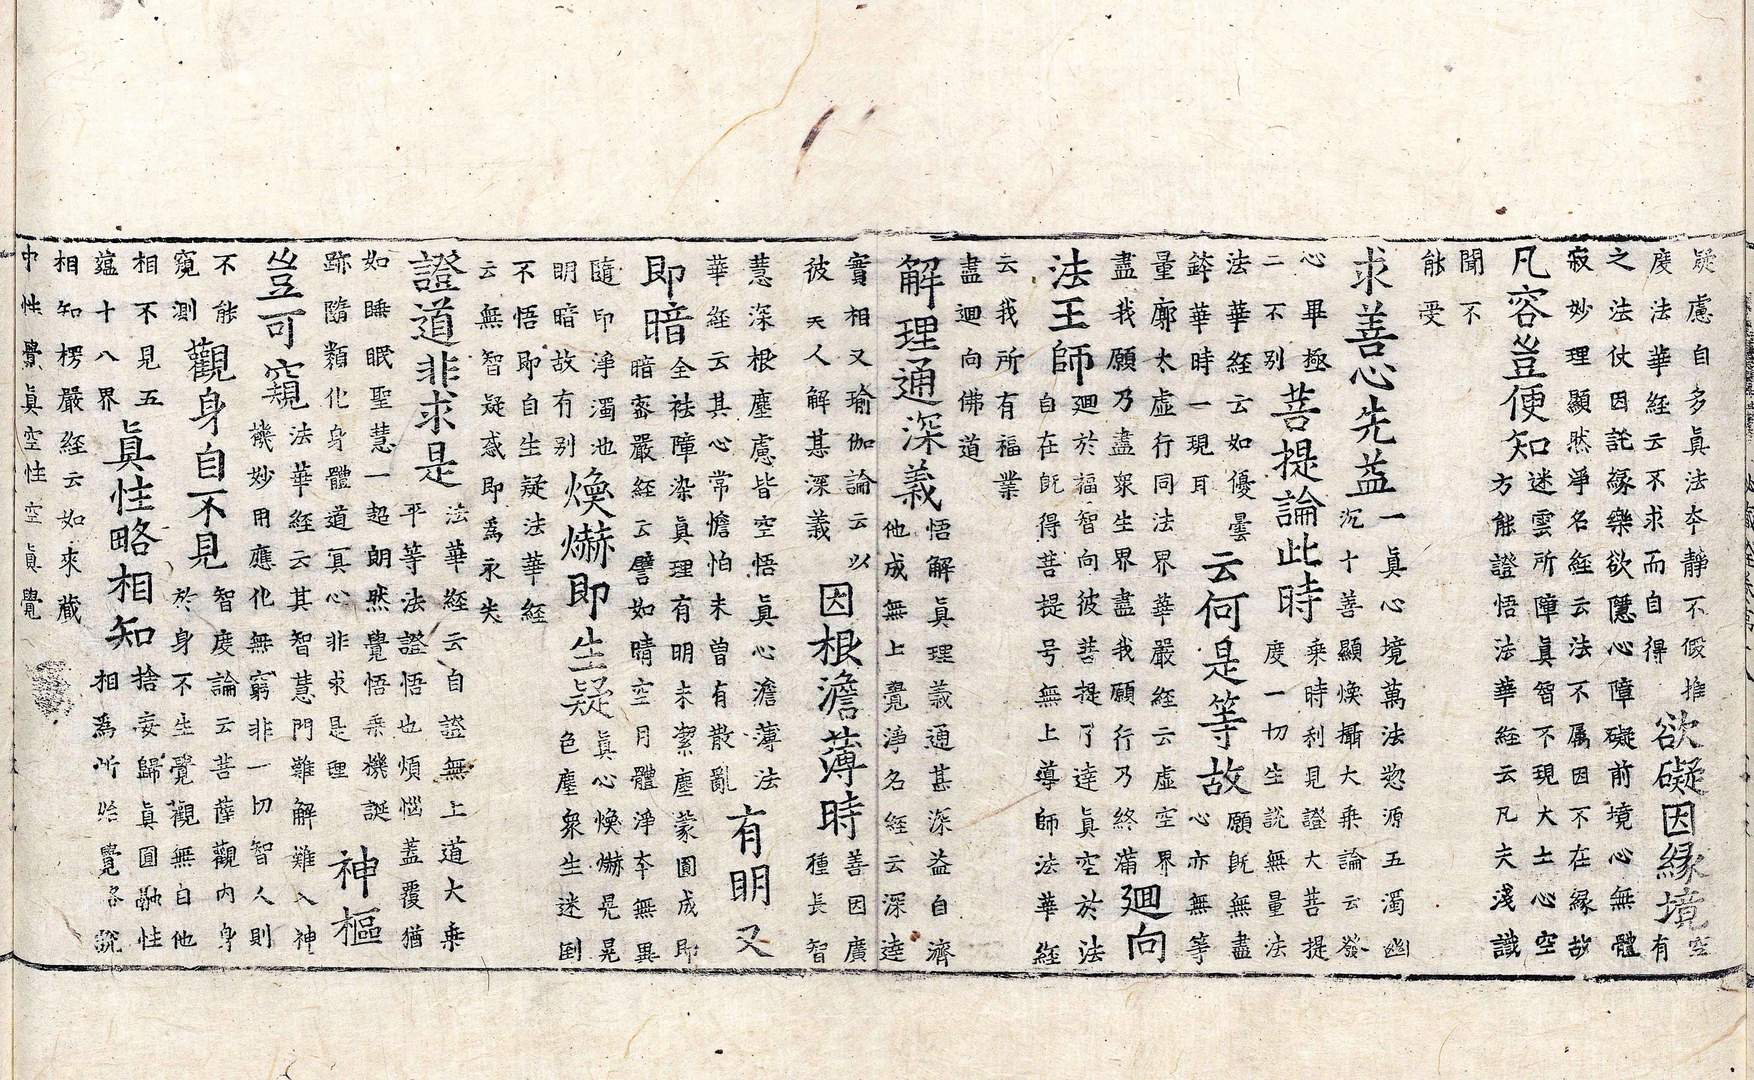 疑慮自多真法夲靜不假推
度法華経云不求而自得
欲礙因緣境
空
有
之法仗因託緣樂欲隱心障礙前境心無體
寂妙理顯然淨名経云法不属因不在緣故
凡容豈便知
迷雲所障真智不現大士心空
方能證悟法華経云凡夫淺識
聞不
能受
求善心先益
一真心境萬法怹源五濁幽
沉十善顯煥攝大乗論云發
心畢極
二不别
菩提論此時
乗時利見證大菩提
度一切生說無量法
法華経云如優曇
鉢華時一現耳
云何是等故
願既無盡
心亦無等
量廓太虛行同法界華嚴経云虛空界
盡我願乃盡衆生界盡我願行乃終滿
廻向
法王師
廻於福智向彼菩提了達真空於法
自在既得菩提号無上導師法華経
云我所有福業
盡廻向佛道
解理通深義
悟解真理義通甚深益自濟
他成無上覺淨名経云深達
實相又瑜伽論云以
彼天人解甚深義
因根澹薄時
善因廣
種長智
慧深根塵慮皆空悟真心澹薄法
華経云其心常憺怕未曽有散亂
有明又
即暗
全祛障染真理有明未潔塵蒙圓成即
暗密嚴経云譬如晴空月體淨夲無異
隨印淨濁池
明暗故有别
煥爀即生疑
真心煥爀晃晃
色塵衆生迷倒
不悟即自生疑法華経
云無智疑惑即為永失
證道非求是
法華経云自證無上道大乗
平等法證悟也煩惱蓋覆猶
如睡眠聖慧一起朗然覺悟乗機誕
跡隨類化身體道真心非求是理
神樞
豈可窺
法華経云其智慧門難解難入神
機妙用應化無窮非一切智人則
不能
窺測
觀身自不見
智度論云菩薩觀内身
於身不生覺觀無自他
相不見五
蘊十八界
真性略相知
捨妄歸真圓融性
相為所始覺各說
相知楞嚴経云如来藏
中性覺真空性空真覺